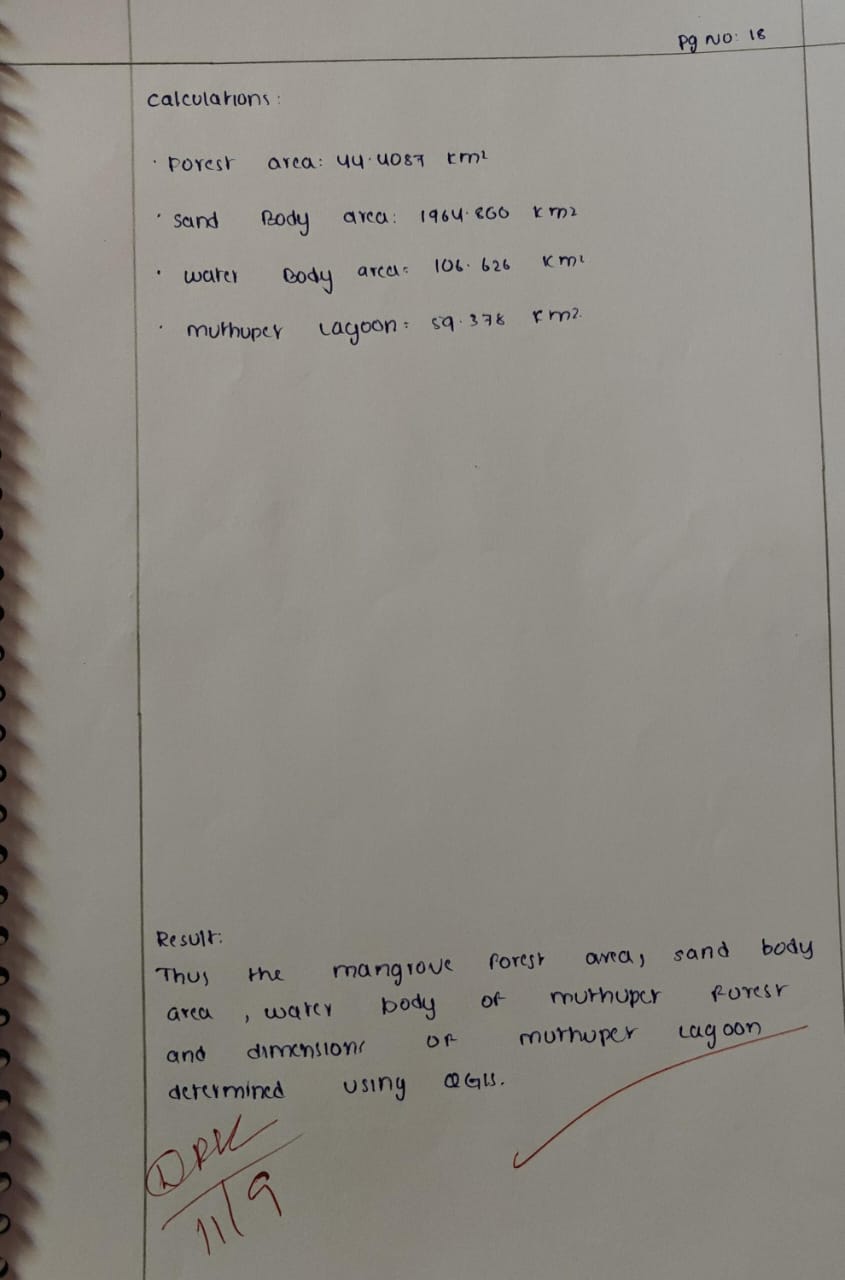 Pg NO: 18
Calculations:
· Forest area: 44.4087 km²
· Sand Body area: 1964.860 km2
· water Body area: 106.626 km²
· muthuper Lagoon: 59.378 km2.
Result:
Thus the mangrove forest area, sand body
area , water body of muthuper Forest
and dimensions of muthuper Lagoon
determined using QGIS.
DRK
11/9